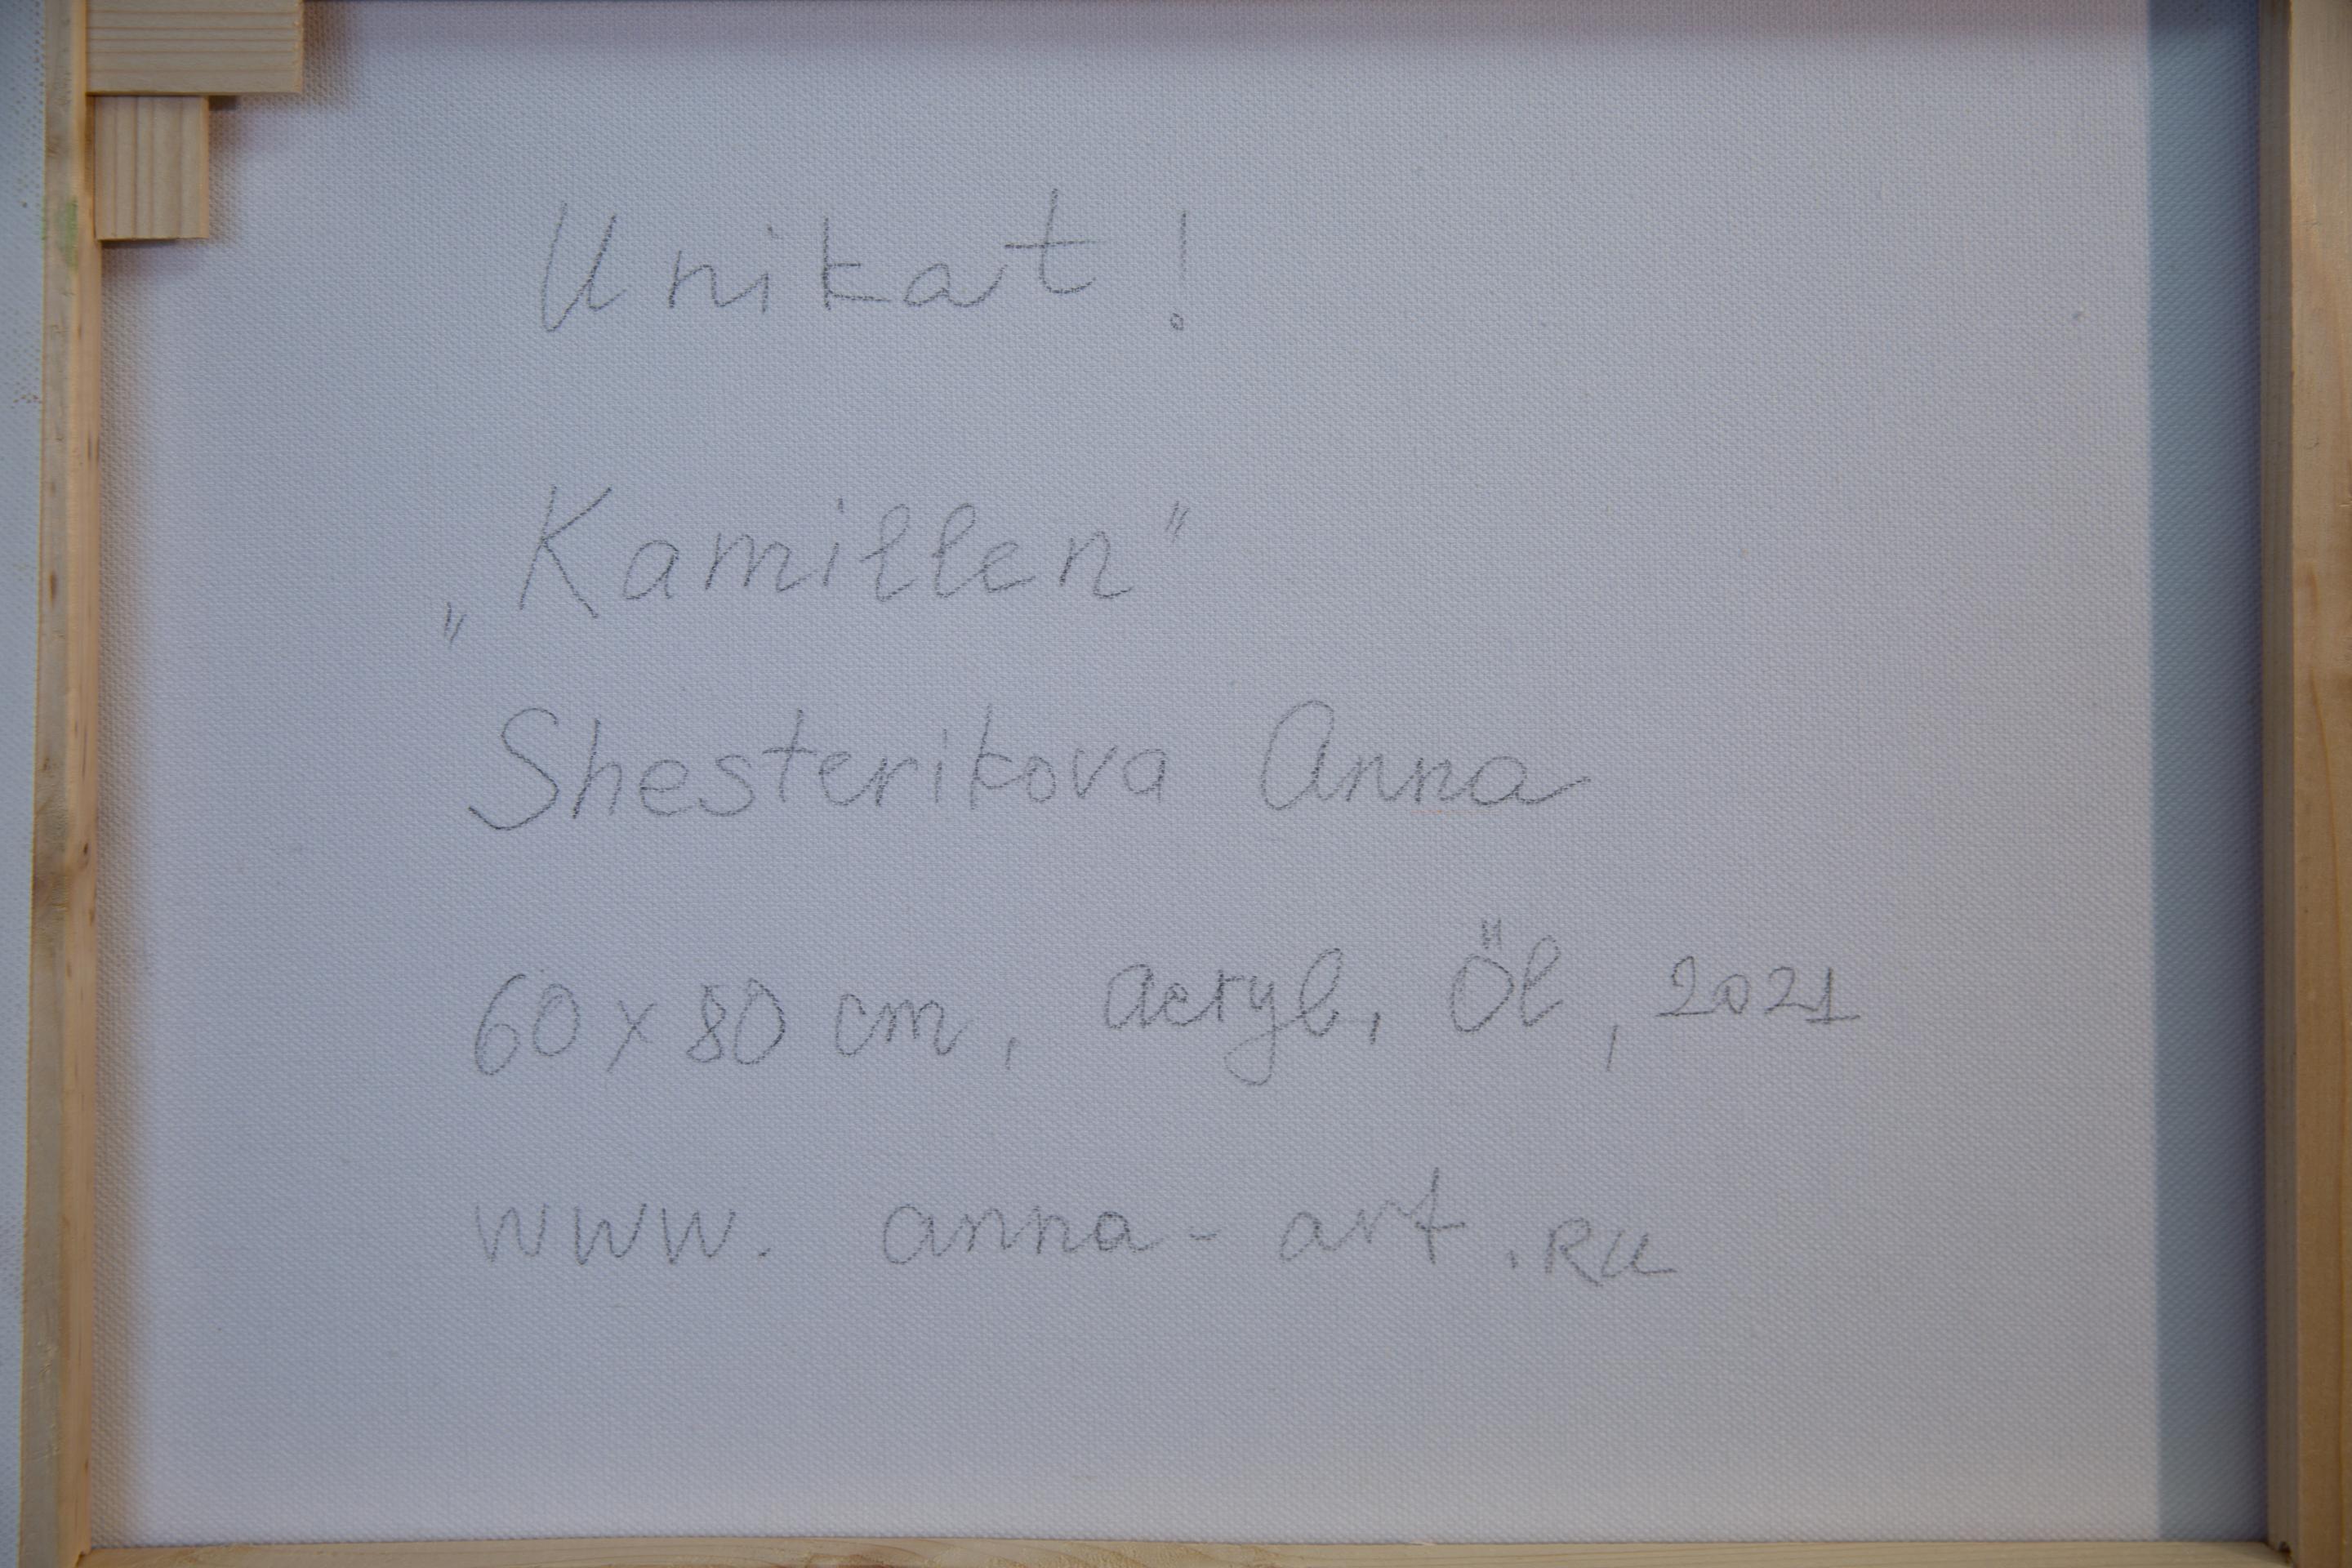 Unikat!
„Kamillen"
Shesterikova Anna
60 x 80 cm, acryl, Öl, 2021
www. anna - art .RU